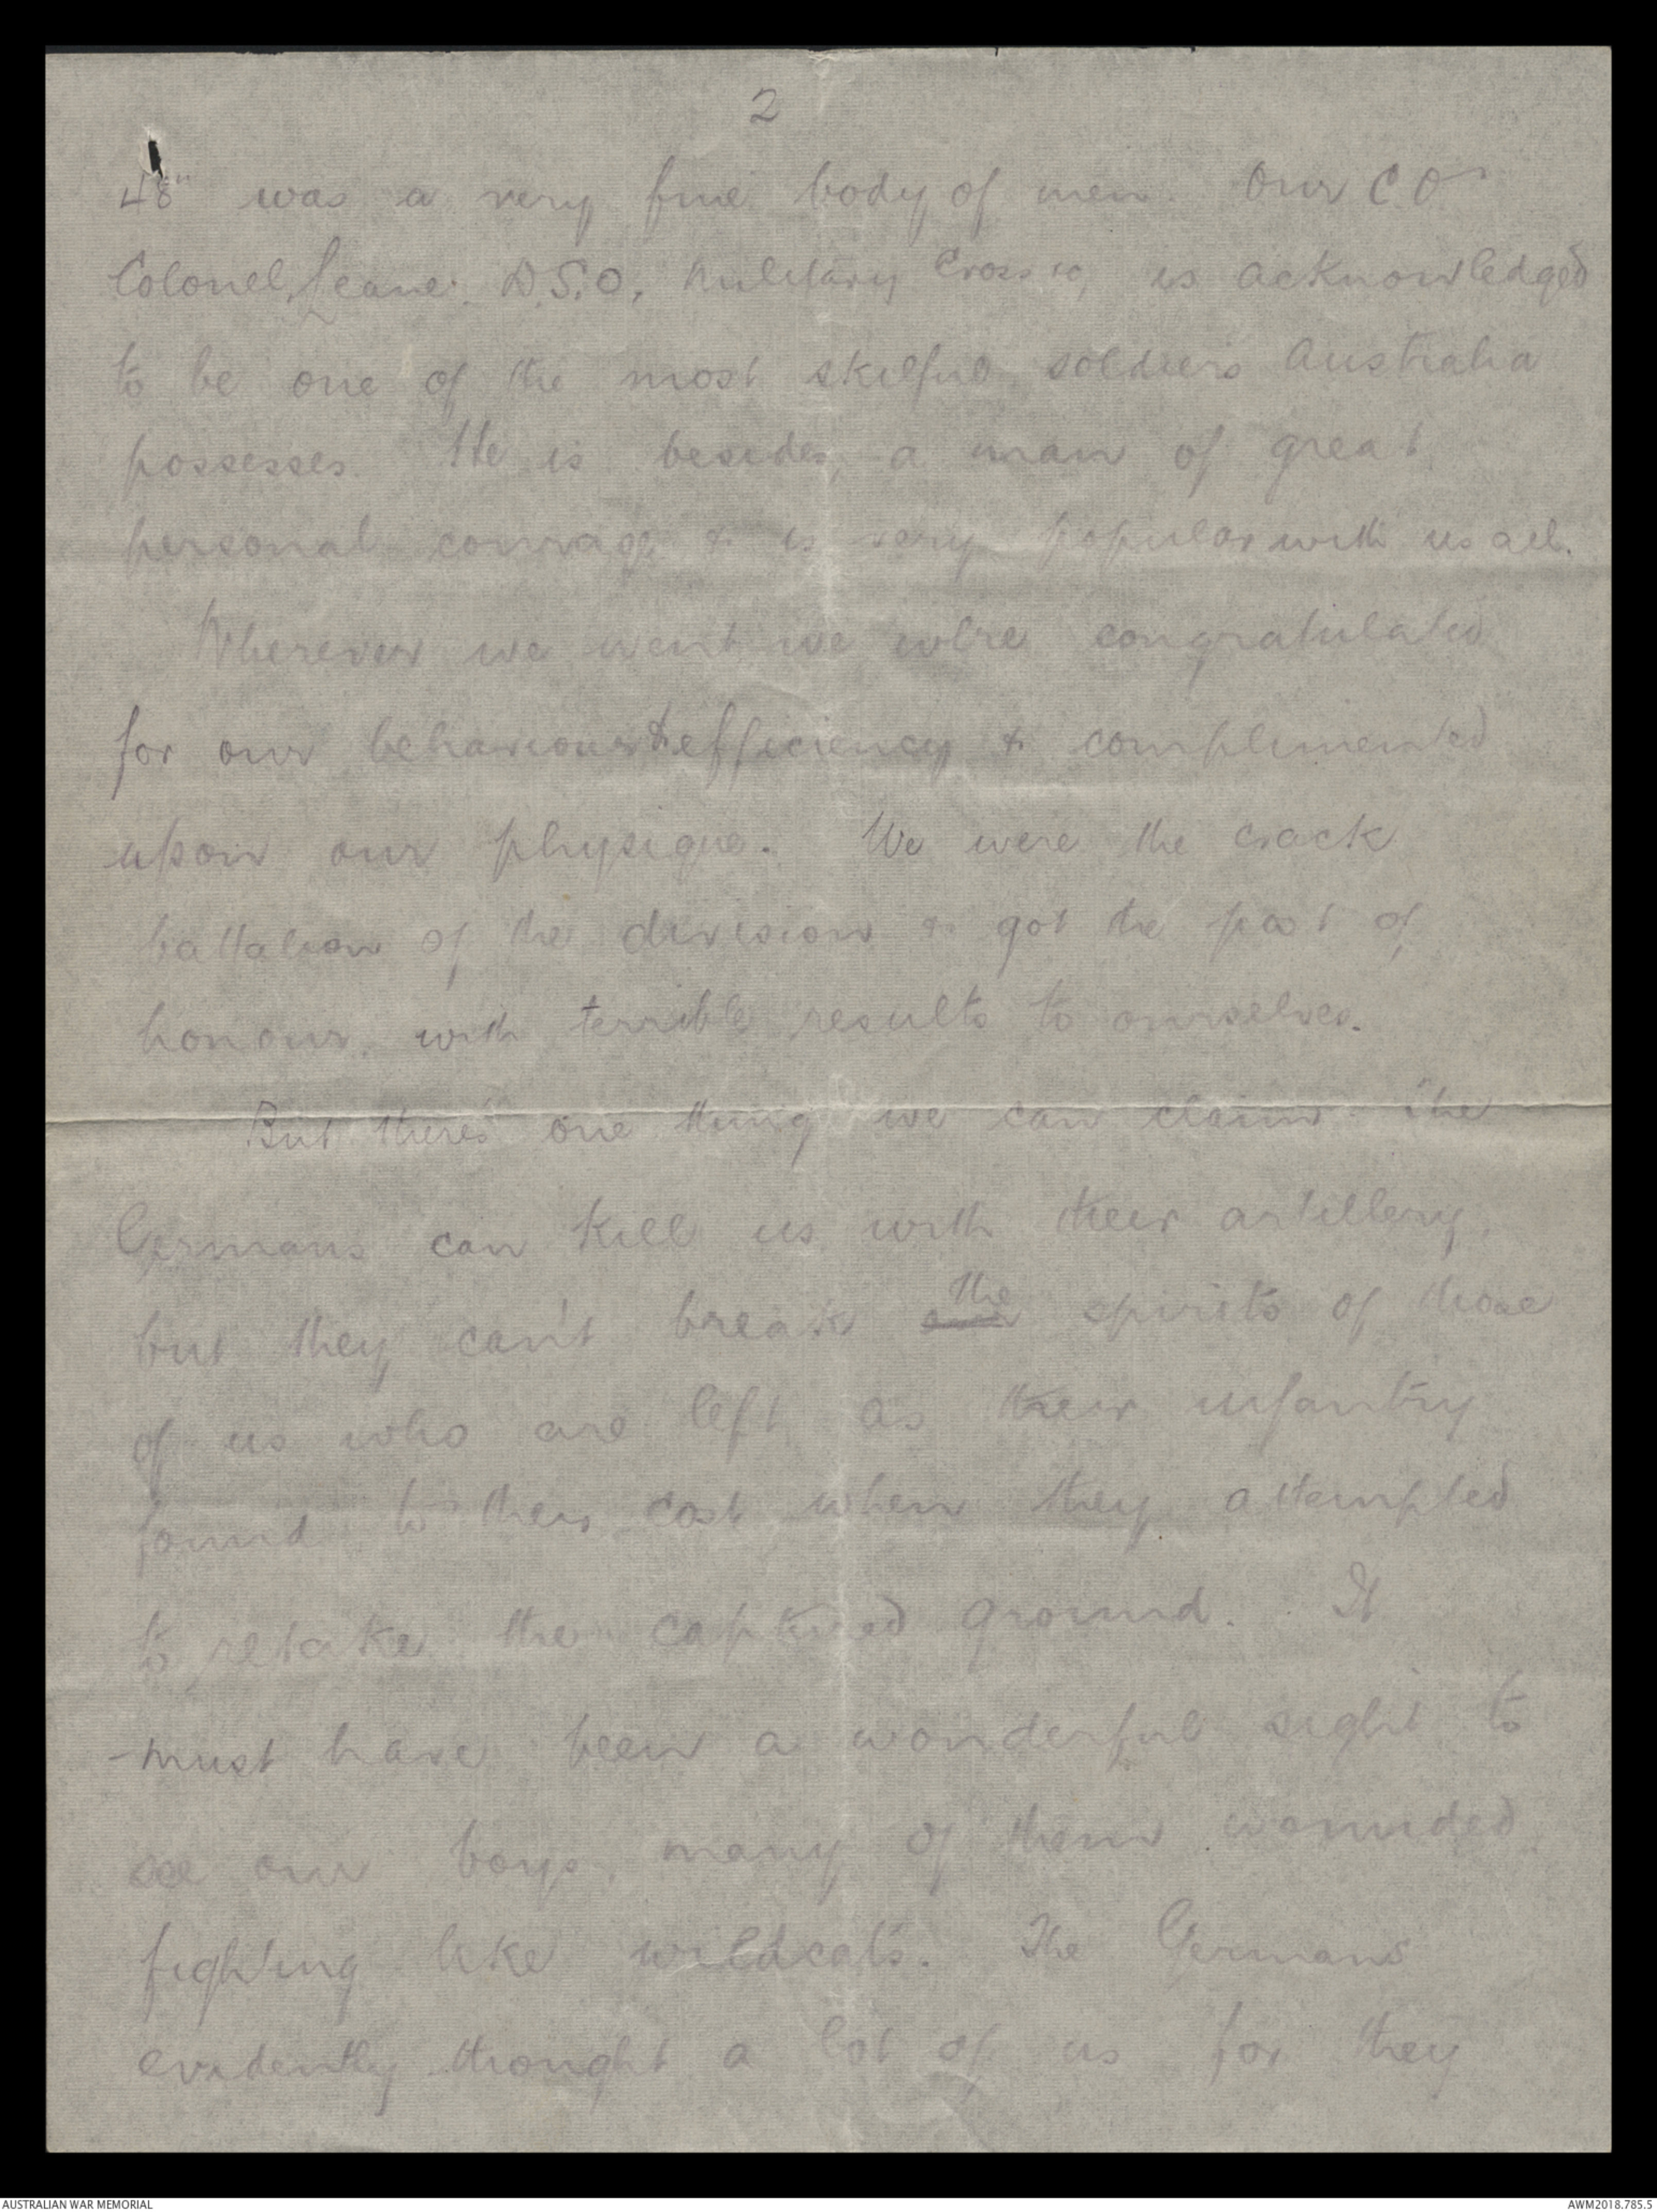 2
48" was a very fine body of men. Our C.O
Colonel Leane. D.S.O, Military Cross is acknowledged
to be one of the most skilful soldiers Australia
possesses. He is besides, a man of great
personal courage & is very popular with us all.
Wherever we went we were congratulated
for our behaviour & efficiency & complimented
upon our physique. We were the crack
battalion of the division & got the post of
honour, with terrible results to ourselves.
But there's one thing we can claim. The
Germans can kill us with their artillery,
but they can't break the spirits of those
of us who are left as their infantry
found to their cost when they attempted
to retake the captured ground. It
must have been a wonderful sight to
see our boys, many of them wounded,
fighting like wildcats. The Germans
evidently thought a lot of us for they
AUSTRALIAN WAR MEMORIAL
AWM2018.785.5